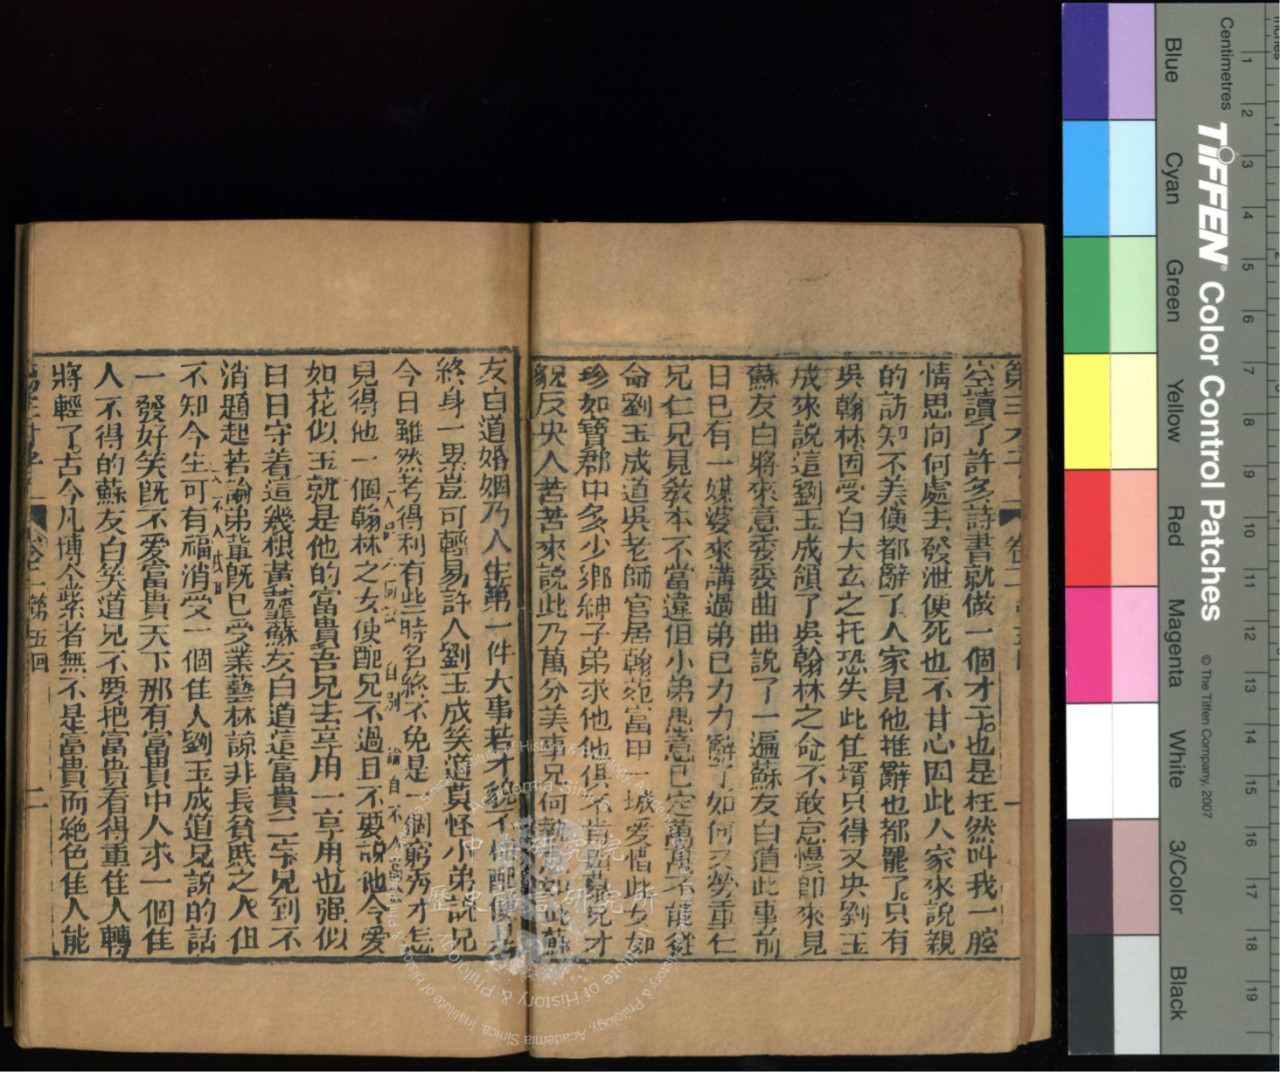 空讀了許多詩書就做一個才子也是枉然叫我一腔
情思向何處去發泄便死也不甘心因此人家來說親
的訪知不美便都辭了人家見他推辭也都罷了只有
吳翰林因受白大玄之托恐失此佳壻只得又央劉玉
成來說這劉玉成領了吳翰林之命不敢怠慢即來見
蘇友白將來意委委曲曲說了一遍蘇友白道此事前
日已有一媒婆來講過弟已力力辭了如何又勞重仁
兄仁兄見敎本不當違但小弟愚意已定萬萬不能從
命劉玉成道吳老師官居翰苑富甲一城愛惜此女如
珍如寶郡中多少鄉紳子弟求他他俱不肯因慕兄才
貌反央人苦苦來說此乃萬分美事兄何執意如此蘇
友白道婚姻乃人生第一件大事若才貌不相配便是
終身一累豈可輕易許人劉玉成笑道莫怪小弟說兄
今日雖然考得利有些時名終不免是一個窮秀才怎
見得他一個翰林之女便配兄不過且不要說他令愛
如花似玉就是他的富貴吾兄去享用一享用也强似
日日守着這幾根黃虀蘇友白道這富貴二字兄到不
消題起若論弟輩既已受業藝林諒非長貧賤之人但
不知今生可有福消受一個佳人劉玉成道兄說的話
一發好笑旣不愛富貴天下那有富貴中人求一個佳
人不得的蘇友白笑道兄不要把富貴看得重佳人轉
將輕了古今凡博金紫者無不是富貴而絶色佳人能
第五回 二
Blue
Cyan
Green
Yellow
Red
Magenta
White
3/Color
Black
Centimetres
TIFFEN Color Control Patches
© The Tiffen Company, 2007
1 2 3 4 5 6 7 8 9 10 11 12 13 14 15 16 17 18 19